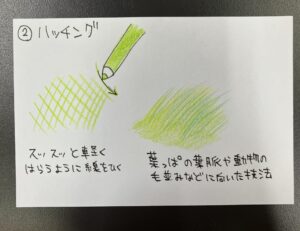 ② ハッチング
スッ スッと軽く
はらうように線をひく
葉っぱの葉脈や動物の
毛並みなどに向いた技法